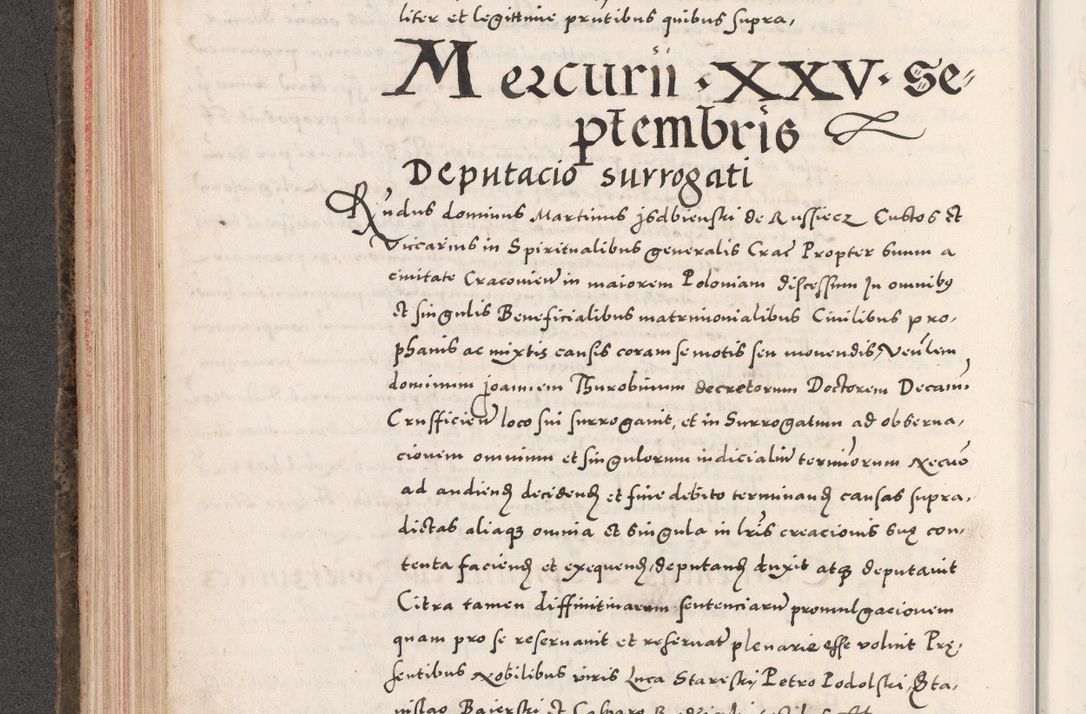 liter et legittime pñtibus quibus supra,
Mercurii · XXV · Se-
ptembris
Deputacio surrogati
Rn̄dus dominus Martinus jsdbienski de Russiecz Custos et
Viccarius in Spiritualibus generalis Crac̄ Propter suum a
ciuitate Cracouien̄ in maiorem Poloniam discessum In omnibꝫ
et singulis Beneficialibus matrimonialibus Ciuilibus pro,
phanis ac mixtis causis coram se motis seu mouendis, Ven̄lem
dominum joannem Thurobinum decretorum Doctorem Decanū
Crusficien̄ loco sui surrogauit, et in Surrogatum ad obserua,
cionem omnium et singulorum iudicialiū terminorum Necnō
ad audienđ decidenđ et fine debito terminanđ causas supra,
dictas aliaqꝫ omnia et singula in lr̄is creacionis suę con,
tenta facienđ et exequenđ, deputanđ duxit atqꝫ deputauit
Citra tamen diffinitiuarum sentenciarū promulgacionem
quam pro se reseruauit et reseruat̄ plenarie esse voluit Prę,
sentibus Nobilibus viris Luca Stareski, Petro Podolski, Sta,
nislao Baierski et